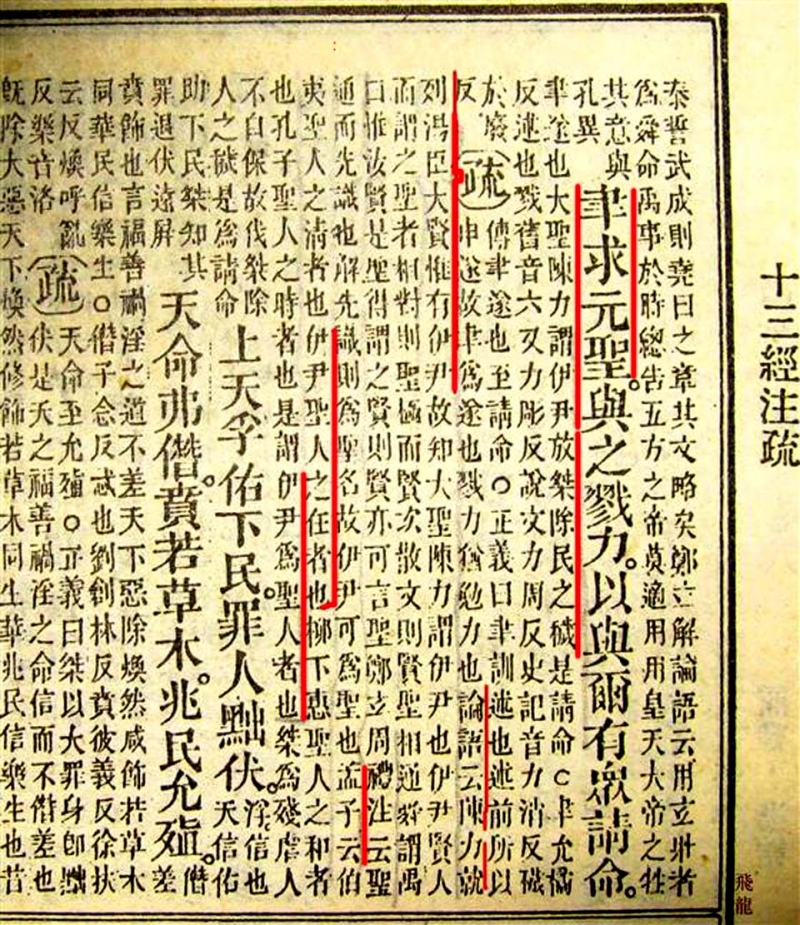 十三經注疏
泰誓武成則堯曰之章其文略矣鄭玄解論語云用玄牡者
為舜命禹事於時總告五方之帝莫適用用皇天大帝之牲
其意與
孔異
聿求元聖。與之戮力。以與爾有眾請命。
聿遂也大聖陳力謂伊尹放桀除民之穢是請命○聿允橘
反述也戮舊音六又力彫反說文力周反史記音力消反
於廢
反
疏
傳聿遂也至請命○正義曰聿訓述也述前所以
申遂故聿為遂也戮力猶勉力也論語云陳力就
列湯臣大賢惟有伊尹故知大聖陳力謂伊尹也伊尹賢人
而謂之聖者相對則聖極而賢次散文則賢聖相通舜謂禹
曰惟汝賢是聖得謂之賢則賢亦可言聖鄭玄周禮注云聖
通而先識也解先識則為聖名故伊尹可為聖也孟子云伯
夷聖人之清者也伊尹聖人之任者也柳下惠聖人之和者
也孔子聖人之時者也是謂伊尹為聖人者也桀為殘虐人
不自保故伐桀除
人之穢是為請命
上天孚佑下民。罪人黜伏。
浮信也
天信佑
助下民桀知其
罪退伏遠屏
天命弗僭。賁若草木。兆民允殖。
僭
差
賁飾也言福善禍淫之道不差天下惡除煥然咸飾若草木
同華民信樂生○僭子念反忒也劉創林反賁彼義反徐扶
云反煥呼亂
反樂音洛
疏
天命至允殖○正義曰桀以大罪身即黜
伏是天之福善禍淫之命信而不僭差也
既除大惡天下煥然修飾若草木同生華兆民信樂生也昔
飛龍